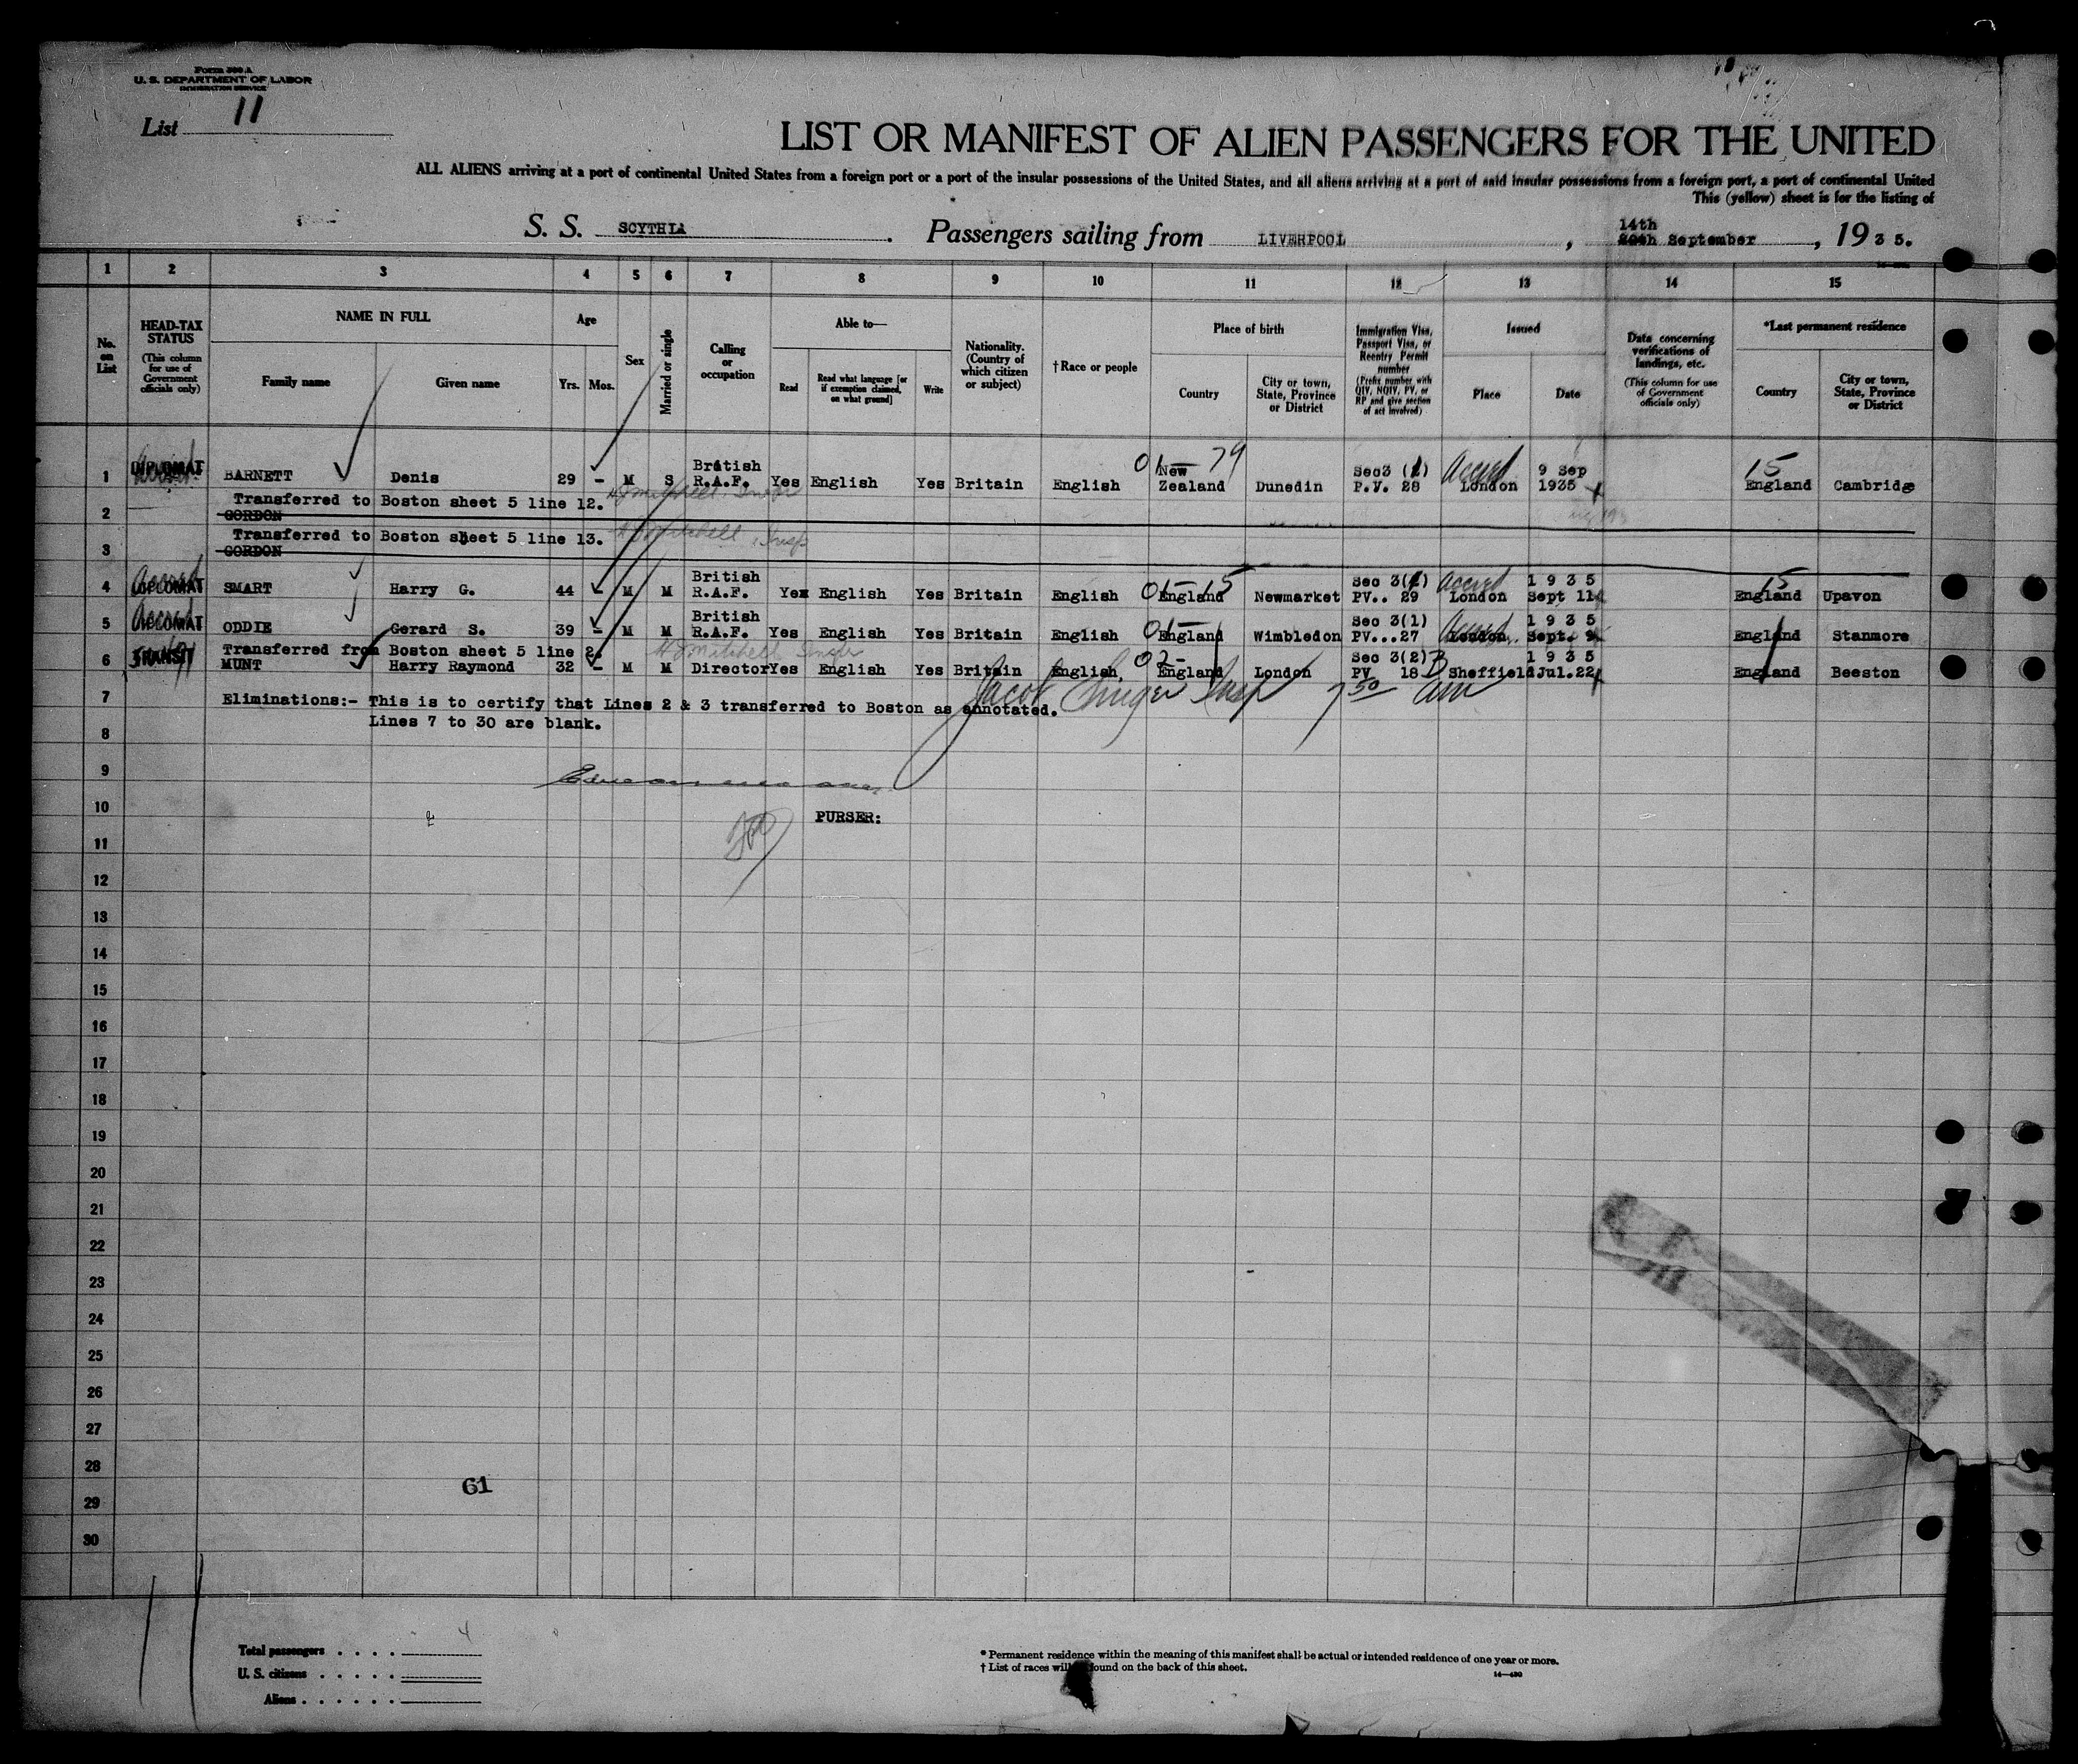 Form 500 A
U. S. DEPARTMENT OF LABOR
IMMIGRATION SERVICE
List 11
LIST OR MANIFEST OF ALIEN PASSENGERS FOR THE UNITED
ALL ALIENS arriving at a port of continental United States from a foreign port or a port of the insular possessions of the United States, and all aliens arriving at a port of said insular possessions from a foreign port, a port of continental United
This (yellow) sheet is for the listing of
S. S. SCYTHIA. Passengers sailing from LIVERPOOL, 14th September, 1935.
1 2 3 4 5 6 7 8 9 10 11 12 13 14 15
No. on List
HEAD-TAX STATUS
(This column for use of Government officials only)
NAME IN FULL
Family name
Given name
Age
Yrs. Mos.
Sex
Married or single
Calling or occupation
Able to—
Read
Read what language [or if exemption claimed, on what ground]
Write
Nationality. (Country of which citizen or subject)
†Race or people
Place of birth
Country
City or town, State, Province or District
Immigration Visa, Passport Visa, or Reentry Permit number
(Prefix number with QIV, NQIV, PV, or RP and give section of act involved)
Issued
Place
Date
Data concerning verifications of landings, etc.
(This column for use of Government officials only)
*Last permanent residence
Country
City or town, State, Province or District
1 DIPLOMAT BARNETT Denis 29 - M S British R.A.F. Yes English Yes Britain English New Zealand Dunedin Sec3 (1) P.V. 28 Accred London 9 Sep 1935 15 England Cambridge
01- 79
Transferred to Boston sheet 5 line 12. H J Mitchell, Insp
2 GORDON
Transferred to Boston sheet 5 line 13. H J Mitchell, Insp
3 GORDON
4 Accred DIPLOMAT SMART Harry G. 44 - M M British R.A.F. Yes English Yes Britain English 01-15 England Newmarket Sec 3(1) PV.. 29 Accred London 1 9 3 5 Sept 11 15 England Upavon
5 Accred DIPLOMAT ODDIE Gerard S. 39 - M M British R.A.F. Yes English Yes Britain English 01- England Wimbledon Sec 3(1) PV...27 Accred London. 1 9 3 5 Sept. 9 England Stanmore
Transferred from Boston sheet 5 line 2. H J Mitchell Insp
6 TRANSIT MUNT Harry Raymond 32 - M M Director Yes English Yes Britain English, 02- England London Sec 3(2) PV 18 Sheffield 1 9 3 5 Jul.22 England Beeston
7 Eliminations:- This is to certify that Lines 2 & 3 transferred to Boston as annotated.
Lines 7 to 30 are blank.
Jacob Insp 7 50 am
8
9
10 PURSER:
11
12
13
14
15
16
17
18
19
20
21
22
23
24
25
26
27
28
61
29
30
Total passengers . . . . 4
U. S. citizens . . . . .
Aliens . . . . . .
* Permanent residence within the meaning of this manifest shall be actual or intended residence of one year or more.
† List of races will found on the back of this sheet.
14—430